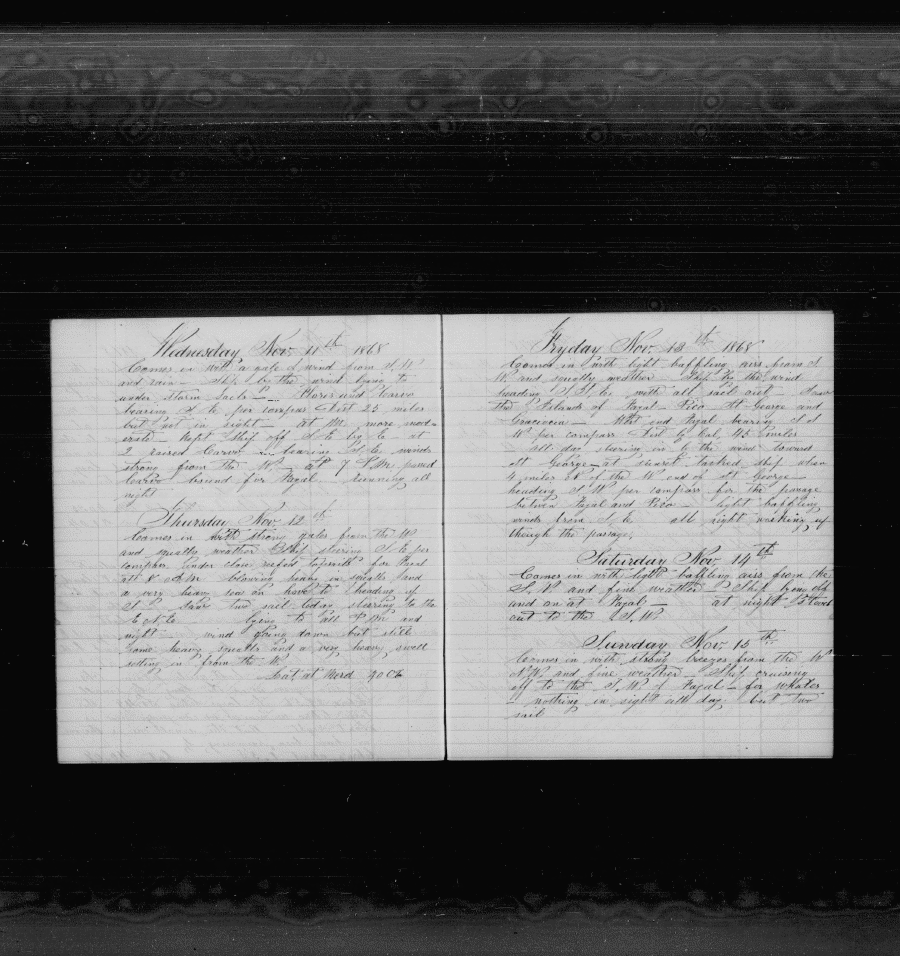 Wednesday Nov. 11th 1868
Comes in with a gale of wind from S.W.
and rain Ship by the wind lying to
under Storm Sails Flores and Corvo
bearing S E per compass Dist 25 miles
but not in sight at M. more mod-
erate Kept Ship off S.E. by E. at
2 raised Corvo bearing S.E. winds
strong from the W. at 7 P.M. passed
Corvo bound for Fayal running all
night
Thursday Nov. 12th
Comes in with strong gales from the W
and squally weather Ship steering S.E. per
compass under close reefed topsails for Fayal
at 8 A.M. blowing heavy in squalls and
a very heavy sea on have to heading up
Saw two sail today steering to the
E.N.E. lying to all P.M. and
night wind going down but still
some heavy squalls and a very heavy swell
setting in from the W.
Lat at Merd 39.02
Fryday Nov. 13th 1868
Comes in with light baffling airs from S
W. and smoky weather Ship by the wind
heading with all sail out Saw
the Islands of Fayal Pico St George and
Graciocia West end Fayal bearing
W per compass Dist by Cal, 45 miles
all day steering in by the wind toward
St George at sunset tacked ship when
4 miles of the W end of St George
heading S.W. per compass for the passage
between Fayal and Pico light baffling
winds from all night working up
though the passage,
Saturday Nov. 14th
Comes in with light baffling airs from the
S.W. and fine weather Ship lying off
and on at Fayal at night Stood
out to the S.W.
Sunday Nov. 15th
Comes in with strong breezes from the W
N.W. and fine weather Ship cruising
off to the S.W. of Fayal for whales
nothing in sight all day but two
sail